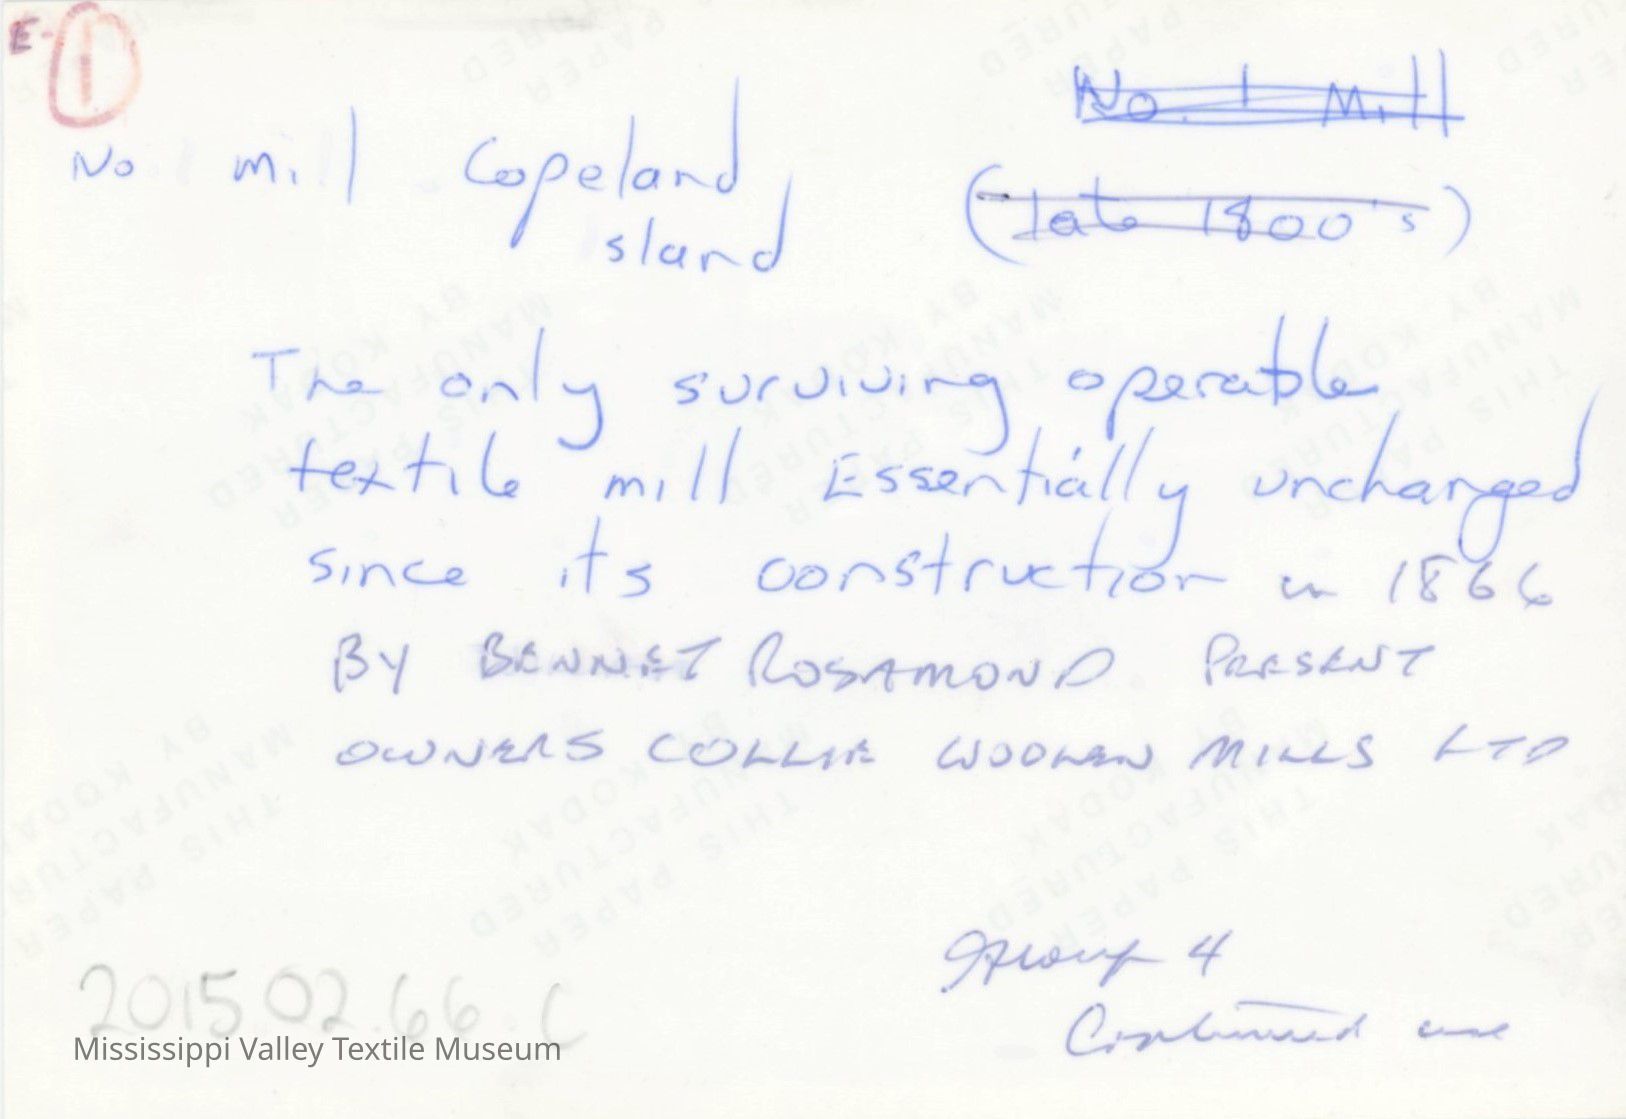 E-1
No mill Copeland
sland
No. 1 Mill
(late 1800's)
The only surviving operable
textile mill Essentially unchanged
since its construction in 1866
BY BENNET ROSAMOND PRESENT
OWNERS COLLIE WOOLEN MILLS LTD
Group 4
Continued use
2015 02.66.C
Mississippi Valley Textile Museum
THIS PAPER
MANUFACTURED
BY KODAK